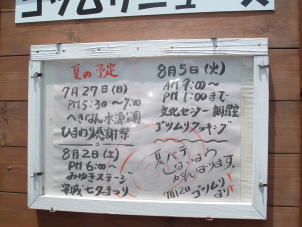 ゴツムリニュース
夏の予定
7月27日(日)
PM5:30〜7:00
へきなん水源公園
ひまわり感謝祭
8月2日(土)
PM6:00〜
みゆきステージ
安城七夕まつり
8月5日(火)
AM9:00〜
PM1:00まで
文化センター調理室
ゴツムリクッキング
夏バテ
しないよう
がんばります。
7月12日 ゴツムリ
より